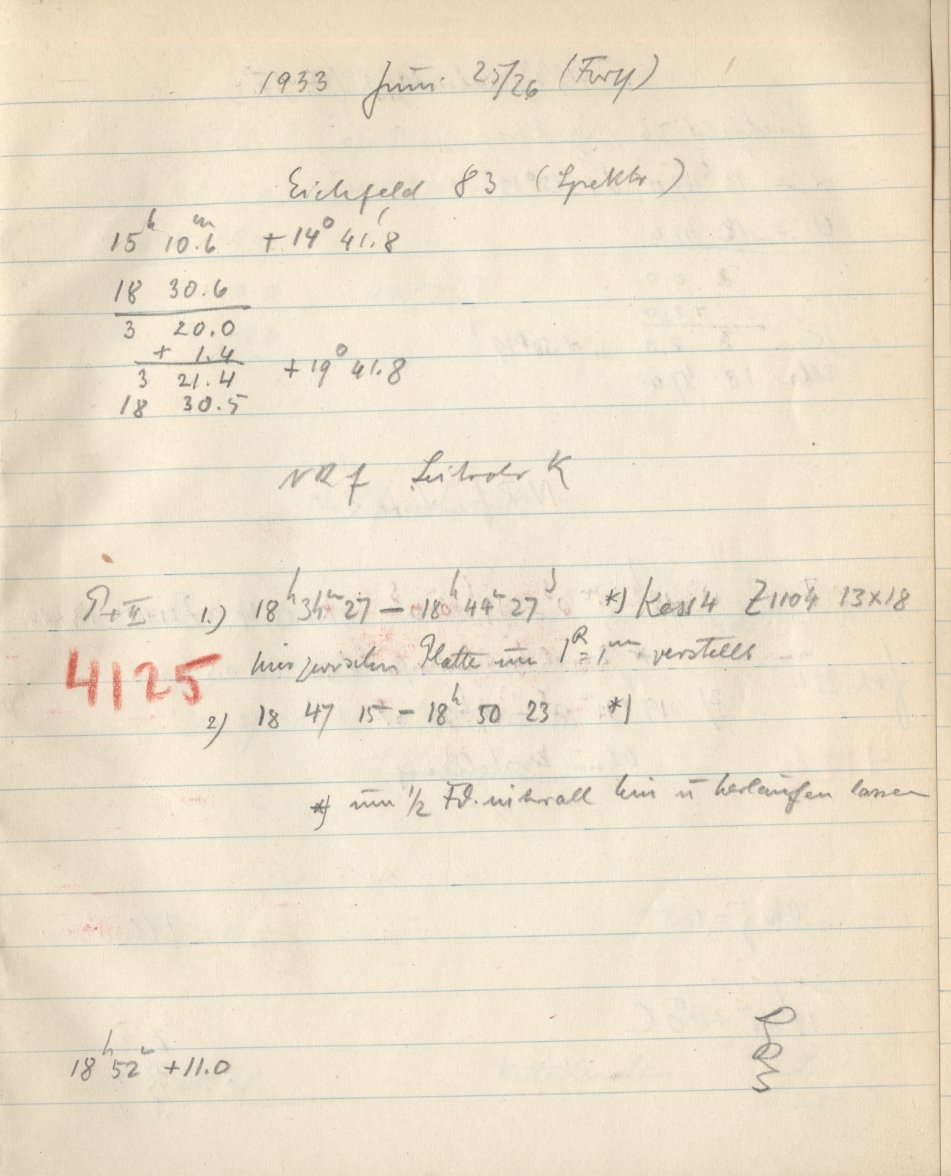 1933 Juni 25/26 (Forts)
Eichfeld 83 (Spektr.)
15ʰ 10.6ᵐ + 14° 41.8'
18 30.6
3 20.0
+ 1.4
3 21.4 + 19° 41.8
18 30.5
Leitrohr K
P+II 1.) 18ʰ 34ᵐ 27 – 18ʰ 44ᵐ 27ˢ *) Kass 4 Z1104 13x18
4125 Platte um 1ᴿ = 1ᵐᵐ verstellt
2) 18 47 15 – 18ʰ 50 23 *)
*) um 1/2 Fd. intervall hin u herlaufen lassen
18ʰ 52ᵐ +11.0